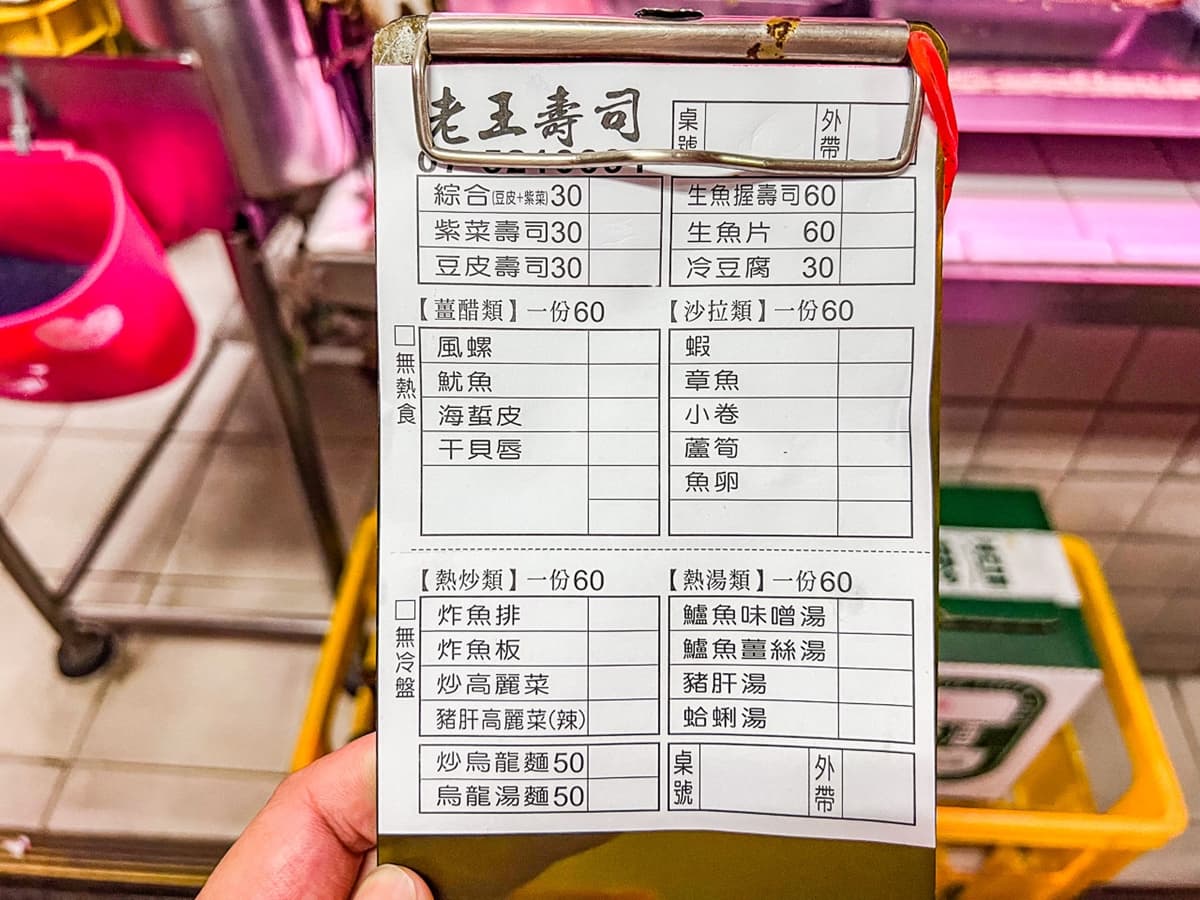 老王壽司
桌號
外帶
綜合(豆皮+紫菜)30
紫菜壽司30
豆皮壽司30
生魚握壽司60
生魚片 60
冷豆腐 30
□無熱食
【薑醋類】一份60
風螺
魷魚
海蜇皮
干貝唇
【沙拉類】一份60
蝦
章魚
小卷
蘆筍
魚卵
□無冷盤
【熱炒類】一份60
炸魚排
炸魚板
炒高麗菜
豬肝高麗菜(辣)
炒烏龍麵50
烏龍湯麵50
【熱湯類】一份60
鱸魚味噌湯
鱸魚薑絲湯
豬肝湯
蛤蜊湯
桌號
外帶